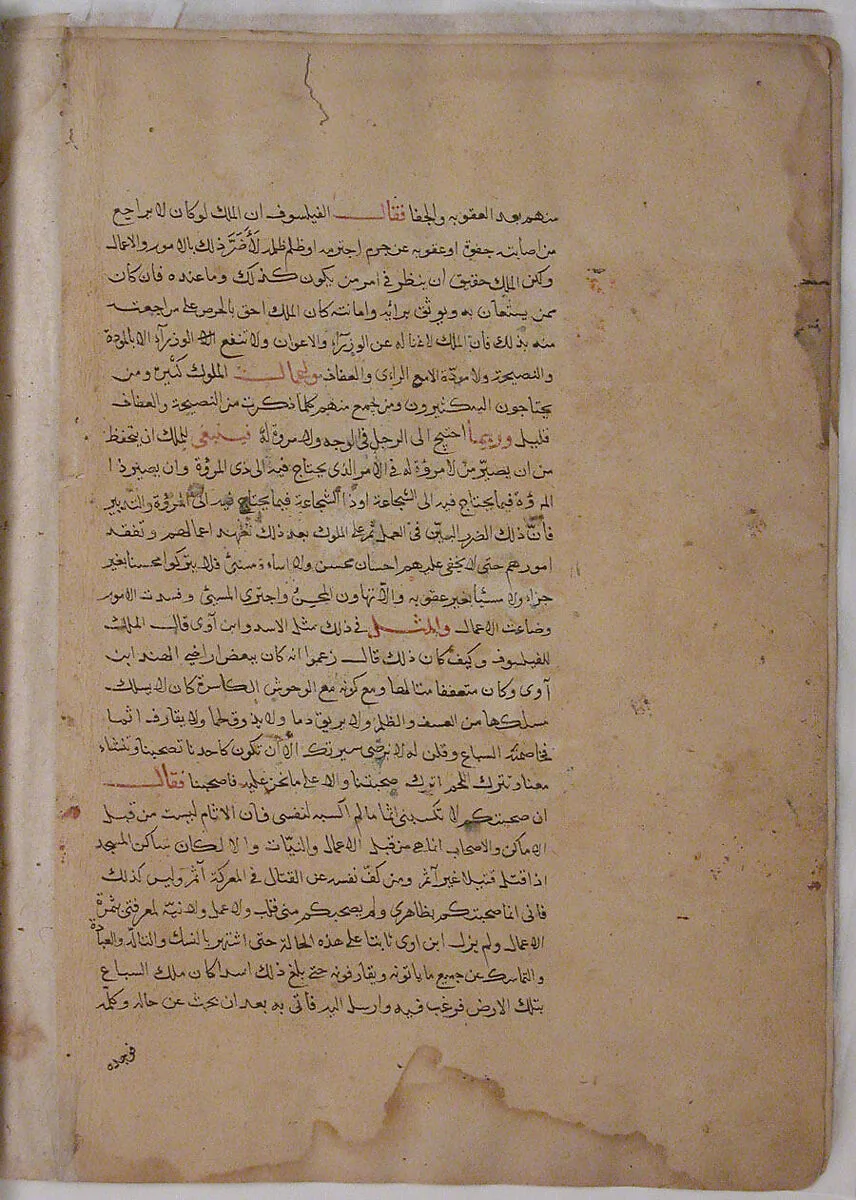 منهم بعد العقوبه والجفا فقال الفيلسوف ان الملك لو كان لا يراجع
من اصابته جفوة او عقوبه عن جرم اجترمه او ظلم ظلمه لأضَرَّ ذلك بالامور والاعمال
ولكن الملك حقيق ان ينظر في امر من يكون كذلك وما عنده فان كان
ممن يستعان به ويوثق برائه وامانته كان الملك احق بالحرص على مراجعته
منه بذلك فان الملك لا غنا له عن الوزرآء والاعوان ولا تنفع الوزرآء الا بالمودة
والنصيحة ولا مودة الا مع الراى والعفاف الملوك كثيرة ومن
يحتاجون اليه كثيرون ومن يجمع منهم كلما ذكرت من النصيحة والعفاف
قليل وربما احتيج الى الرجل في الوجه ولا مروة له فينبغى للملك ان يتحفظ
من ان يصير من لا مروّة له في الامر الذى يحتاج فيه الى ذى المروة وان يصير ذا
المروّة فيما يحتاج فيه الى الشجاعة او ذا الشجاعة فيما يحتاج فيه الى المروّة والتدبير
فانّ ذلك الضرر البين فى العمل ثم على الملوك بعد ذلك تعهد اعمالهم وتفقد
امورهم حتى لا يخفى عليهم احسان محسن ولا اساءة مسئ فلا يتركوا محسنا بغير
جزاء ولا مسئًا بغير عقوبه والا تهاون المحسن واجترى المسئ وفسدت الامور
وضاعت الاعمال والمثل في ذلك مثل الاسد وابن آوى قال الملك
للفيلسوف وكيف كان ذلك قال زعموا انه كان ببعض اراضي الهند ابن
آوى وكان متعففا متالها ومع كونه مع الوحوش الكاسرة كان لا يسلك
مسلكها من العسف والظلم ولا يريق دما ولا يذوق لحما ولا يقارف اثما
فخاصمته السباع وقلن له لا نرضى سيرتك الا ان تكون كاحدنا تصحبنا وتنشاء
معنا وتترك اللحم اترك صحبتنا والا على ما نحن عليه فاصحبنا فقال
ان صحبتكم لا تكسبنى اثما ما لم اكسبه لنفسى فان الاثام ليست من قبل
الاماكن والاصحاب انما هى من قبل الاعمال والنيّات والا لكان ساكن المسجد
اذا قتل قتيلا غير آثم ومن كفّ نفسه عن القتال في المعركة آثم وليس كذلك
فانى انما صحبتكم بظاهرى ولم يصحبكم منى قلب ولا عمل ولا نية لمعرفتى بثمرة
الاعمال ولم يزل ابن اوى ثابتا على هذه الحالة حتى اشتهر بالنسك والتالّه والعبادة
والتماسك عن جميع ما ياتونه ويقارفونه حتى بلغ ذلك اسدا كان ملك السباع
بتلك الارض فرغب فيه وارسل اليه فأتى به بعد ان بحث عن حاله وكلّمه
فوجده